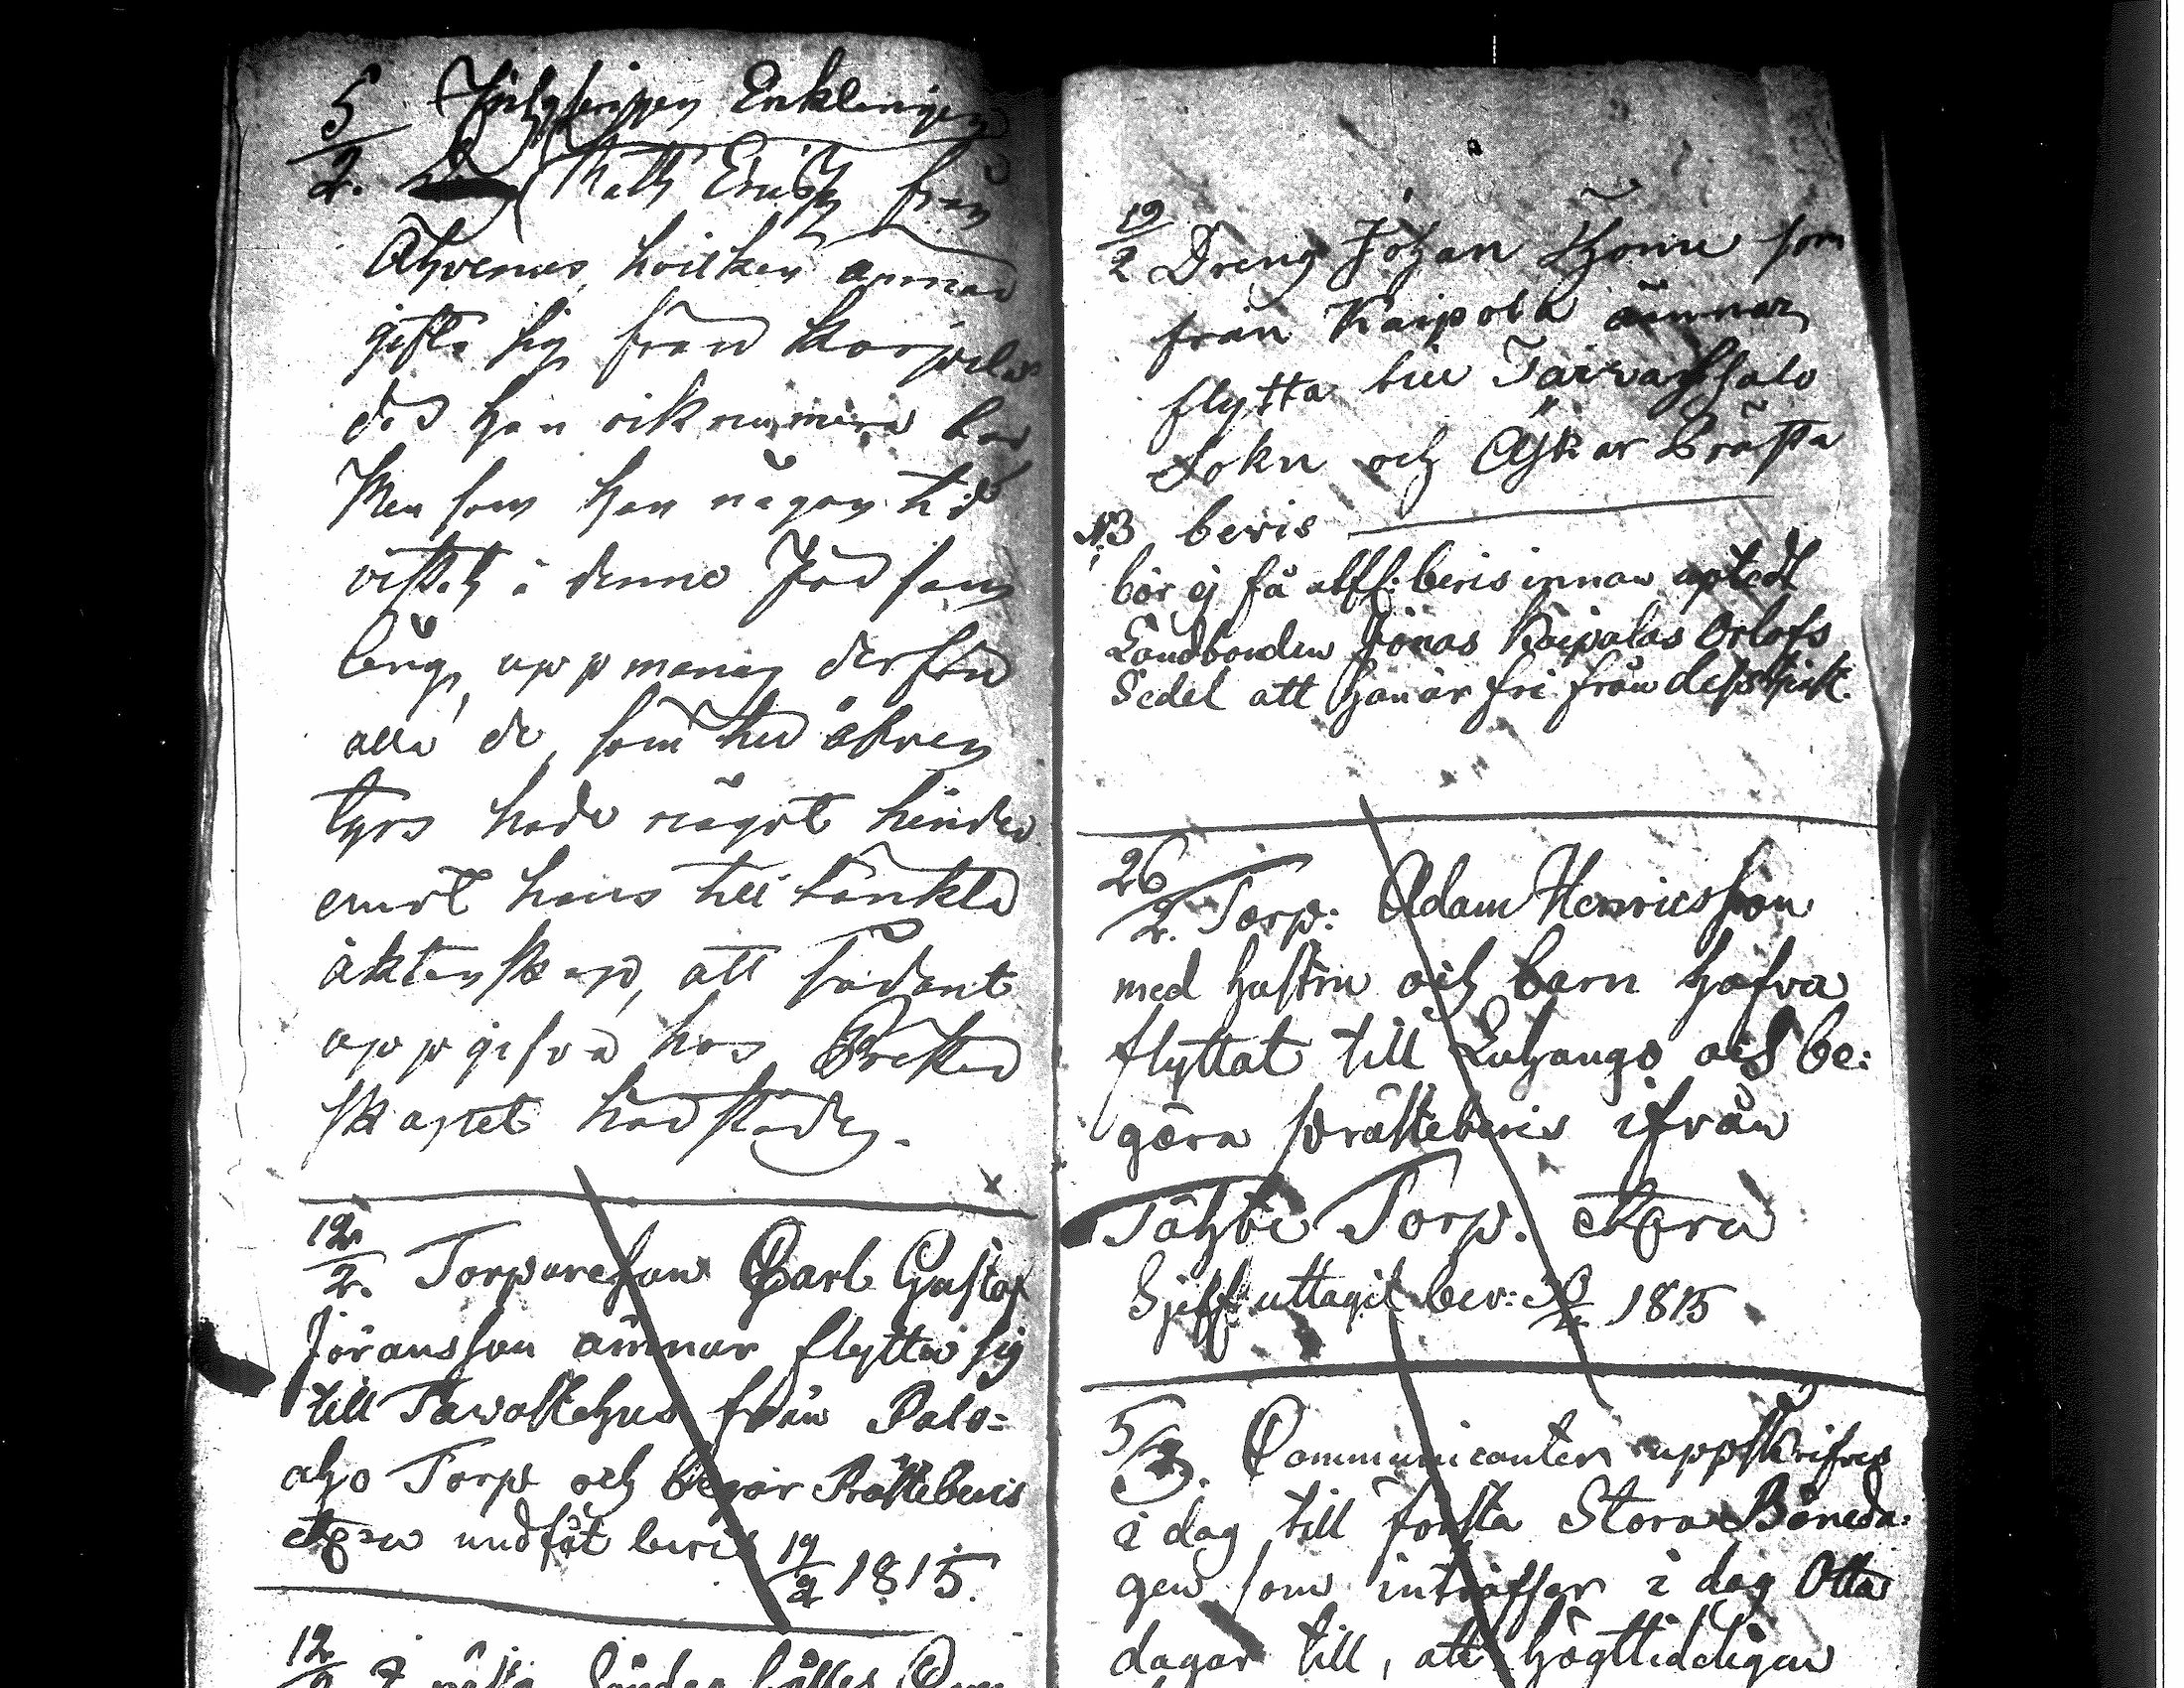 5/2. Enklingen
Matts Ersson från
Ahvenus, hvilken ämnar
gifta sig från Korpilax
der han ock numera bor
Men som han någon tid
vistats i denna Församl
ling, uppmanas derföre
alla de, som till äfven
tyrs hade något hinder
emot hans tilltänkta
äktenskap, att sådant
uppgifva hos Prester
skapet härstädes.
12/2. Torparesonen Carl Gustaf
Jöransson ämnar flytta sig
till Tawastehus från Palo=
aho Torp och begär Prästebevis
undfåt bevis 19/2 1815.
12/2 I nästa Söndag hålles
19/2 Dreng Johan Thome som
från Kaipola ämnar
flytta till Taivassalo
Sokn och Äskar Prästa
bevis
NB bör ej få afff: bevis innan uptedt
Landbonden Jonas Kaipolas Orlofs
Sedel att han är fri från dess tjenst.
26/2. Torp: Adam Henricsson
med hustru och barn hafva
flyttat till Luhango och be:
gära Prästebevis ifrån
Tähti Torp.
Sjelff: uttagit bev: 1815
5/3. Communicanter uppskrifves
i dag till första Stora Böneda:
gen som inträffar i dag Otta
dagar till, att högtideligen